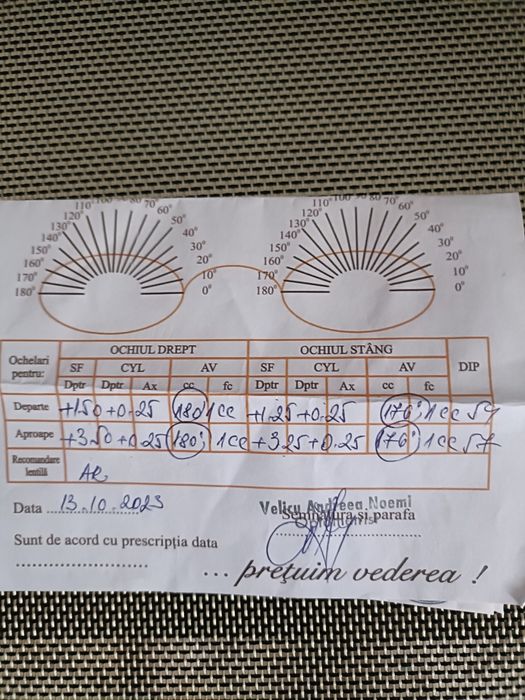 110° 100 80 70° 60° 110° 100 80 70° 60°
120° 50° 120° 50°
130° 40° 130° 40°
140° 30° 140° 30°
150° 20° 150° 20°
160° 10° 160° 10°
170° 0° 170° 0°
180° 180°
Ochelari pentru: OCHIUL DREPT OCHIUL STÂNG DIP
SF CYL AV SF CYL AV
Dptr Dptr Ax cc fc Dptr Dptr Ax cc fc
Departe +1.50 +0.25 180° 1cc +1.25 +0.25 176° 1cc
Aproape +3.50 +0.25 180° 1cc +3.25 +0.25 176° 1cc 57
Recomandare lentilă AR
Data 13.10.2023 Velicu Andreea Noemi
Semnătura și parafa
Optometrist
Sunt de acord cu prescripția data
... prețuim vederea !